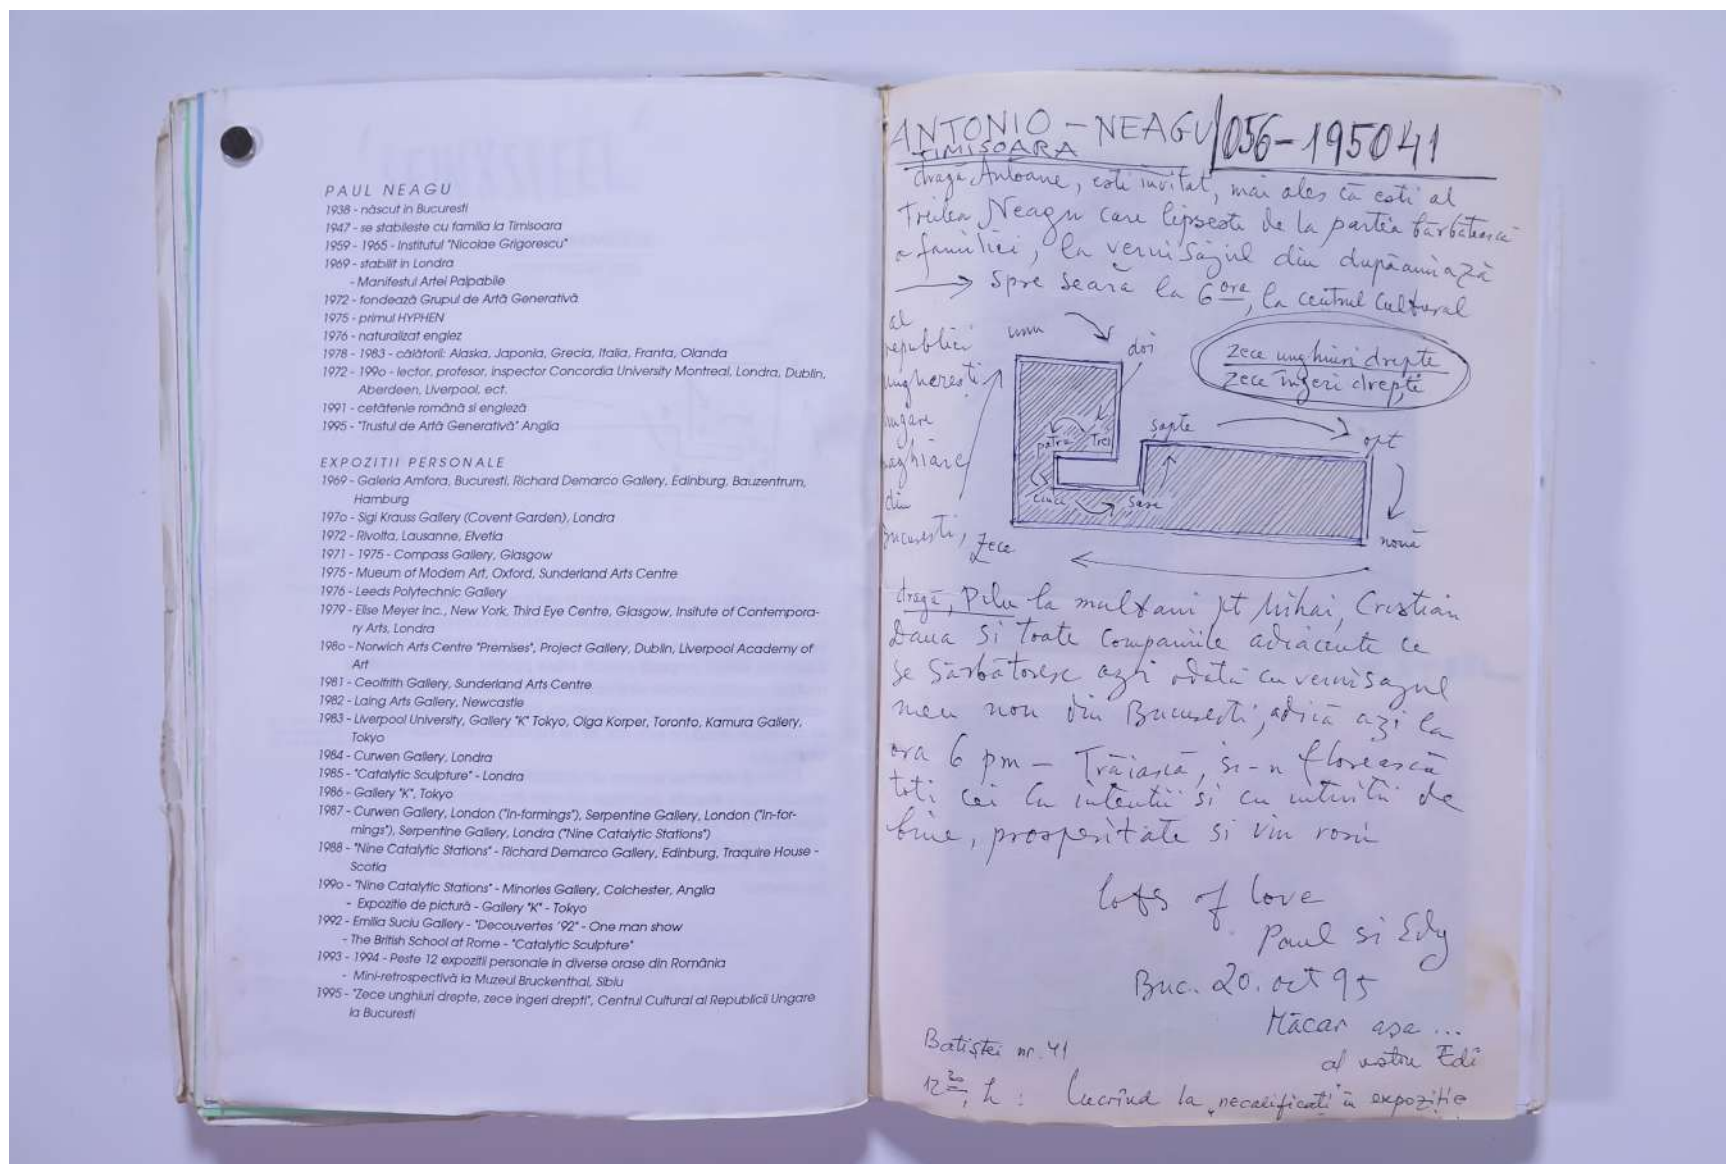 PAUL NEAGU
1938 - născut in Bucuresti
1947 - se stabileste cu familia la Timisoara
1959 - 1965 - Institutul "Nicolae Grigorescu"
1969 - stabilit in Londra
- Manifestul Artei Palpabile
1972 - fondează Grupul de Artă Generativă
1975 - primul HYPHEN
1976 - naturalizat englez
1978 - 1983 - călătorii: Alaska, Japonia, Grecia, Italia, Franta, Olanda
1972 - 199o - lector, profesor, inspector Concordia University Montreal, Londra, Dublin,
Aberdeen, Liverpool, ect.
1991 - cetătenie română si engleză
1995 - "Trustul de Artă Generativă" Anglia
EXPOZITII PERSONALE
1969 - Galeria Amfora, Bucuresti, Richard Demarco Gallery, Edinburg, Bauzentrum,
Hamburg
197o - Sigi Krauss Gallery (Covent Garden), Londra
1972 - Rivolta, Lausanne, Elvetia
1971 - 1975 - Compass Gallery, Glasgow
1975 - Mueum of Modern Art, Oxford, Sunderland Arts Centre
1976 - Leeds Polytechnic Gallery
1979 - Elise Meyer Inc., New York, Third Eye Centre, Glasgow, Insitute of Contempora-
ry Arts, Londra
198o - Norwich Arts Centre "Premises", Project Gallery, Dublin, Liverpool Academy of
Art
1981 - Ceolfrith Gallery, Sunderland Arts Centre
1982 - Laing Arts Gallery, Newcastle
1983 - Liverpool University, Gallery "K" Tokyo, Olga Korper, Toronto, Kamura Gallery,
Tokyo
1984 - Curwen Gallery, Londra
1985 - "Catalytic Sculpture" - Londra
1986 - Gallery "K", Tokyo
1987 - Curwen Gallery, London ("In-formings"), Serpentine Gallery, London ("In-for-
mings"), Serpentine Gallery, Londra ("Nine Catalytic Stations")
1988 - "Nine Catalytic Stations" - Richard Demarco Gallery, Edinburg, Traquire House -
Scotia
199o - "Nine Catalytic Stations" - Minories Gallery, Colchester, Anglia
- Expozitie de pictură - Gallery "K" - Tokyo
1992 - Emilia Suciu Gallery - "Decouvertes '92" - One man show
- The British School at Rome - "Catalytic Sculpture"
1993 - 1994 - Peste 12 expozitii personale in diverse orase din România
- Mini-retrospectivă la Muzeul Bruckenthal, Sibiu
1995 - "Zece unghiuri drepte, zece ingeri drepti", Centrul Cultural al Republicii Ungare
la Bucuresti
ANTONIO - NEAGU / 056-195041
TIMISOARA
dragă Antoane, esti invitat, mai ales că esti al
treilea Neagu care lipseste de la partea bărbătească
a familiei, la vernisajul din dupăamiază
spre seară la 6 ora, la centrul cultural
al
republici
ungherești
ungare
maghiare
din
Bucuresti,
unu
doi
trei
patru
cinci
sase
șapte
opt
nouă
zece
zece unghiuri drepte
zece îngeri drepți
dragă, Pilu la multani pt Mihai, Cristian
Dana si toate companiile adiacente ce
se sărbătoresc azi odată cu vernisagul
meu nou din Bucuresti, adică azi la
ora 6 pm - Trăiască, si-n florească
toti cei cu intentii si cu intuitii de
bine, prosperitate si vin rosu
lots of love
Paul si Edy
Buc. 20. oct 95
Măcar așa ...
al vostru Edi
Batiștei nr. 41
12 30, h : Lucrînd la "necalificați" în expoziție